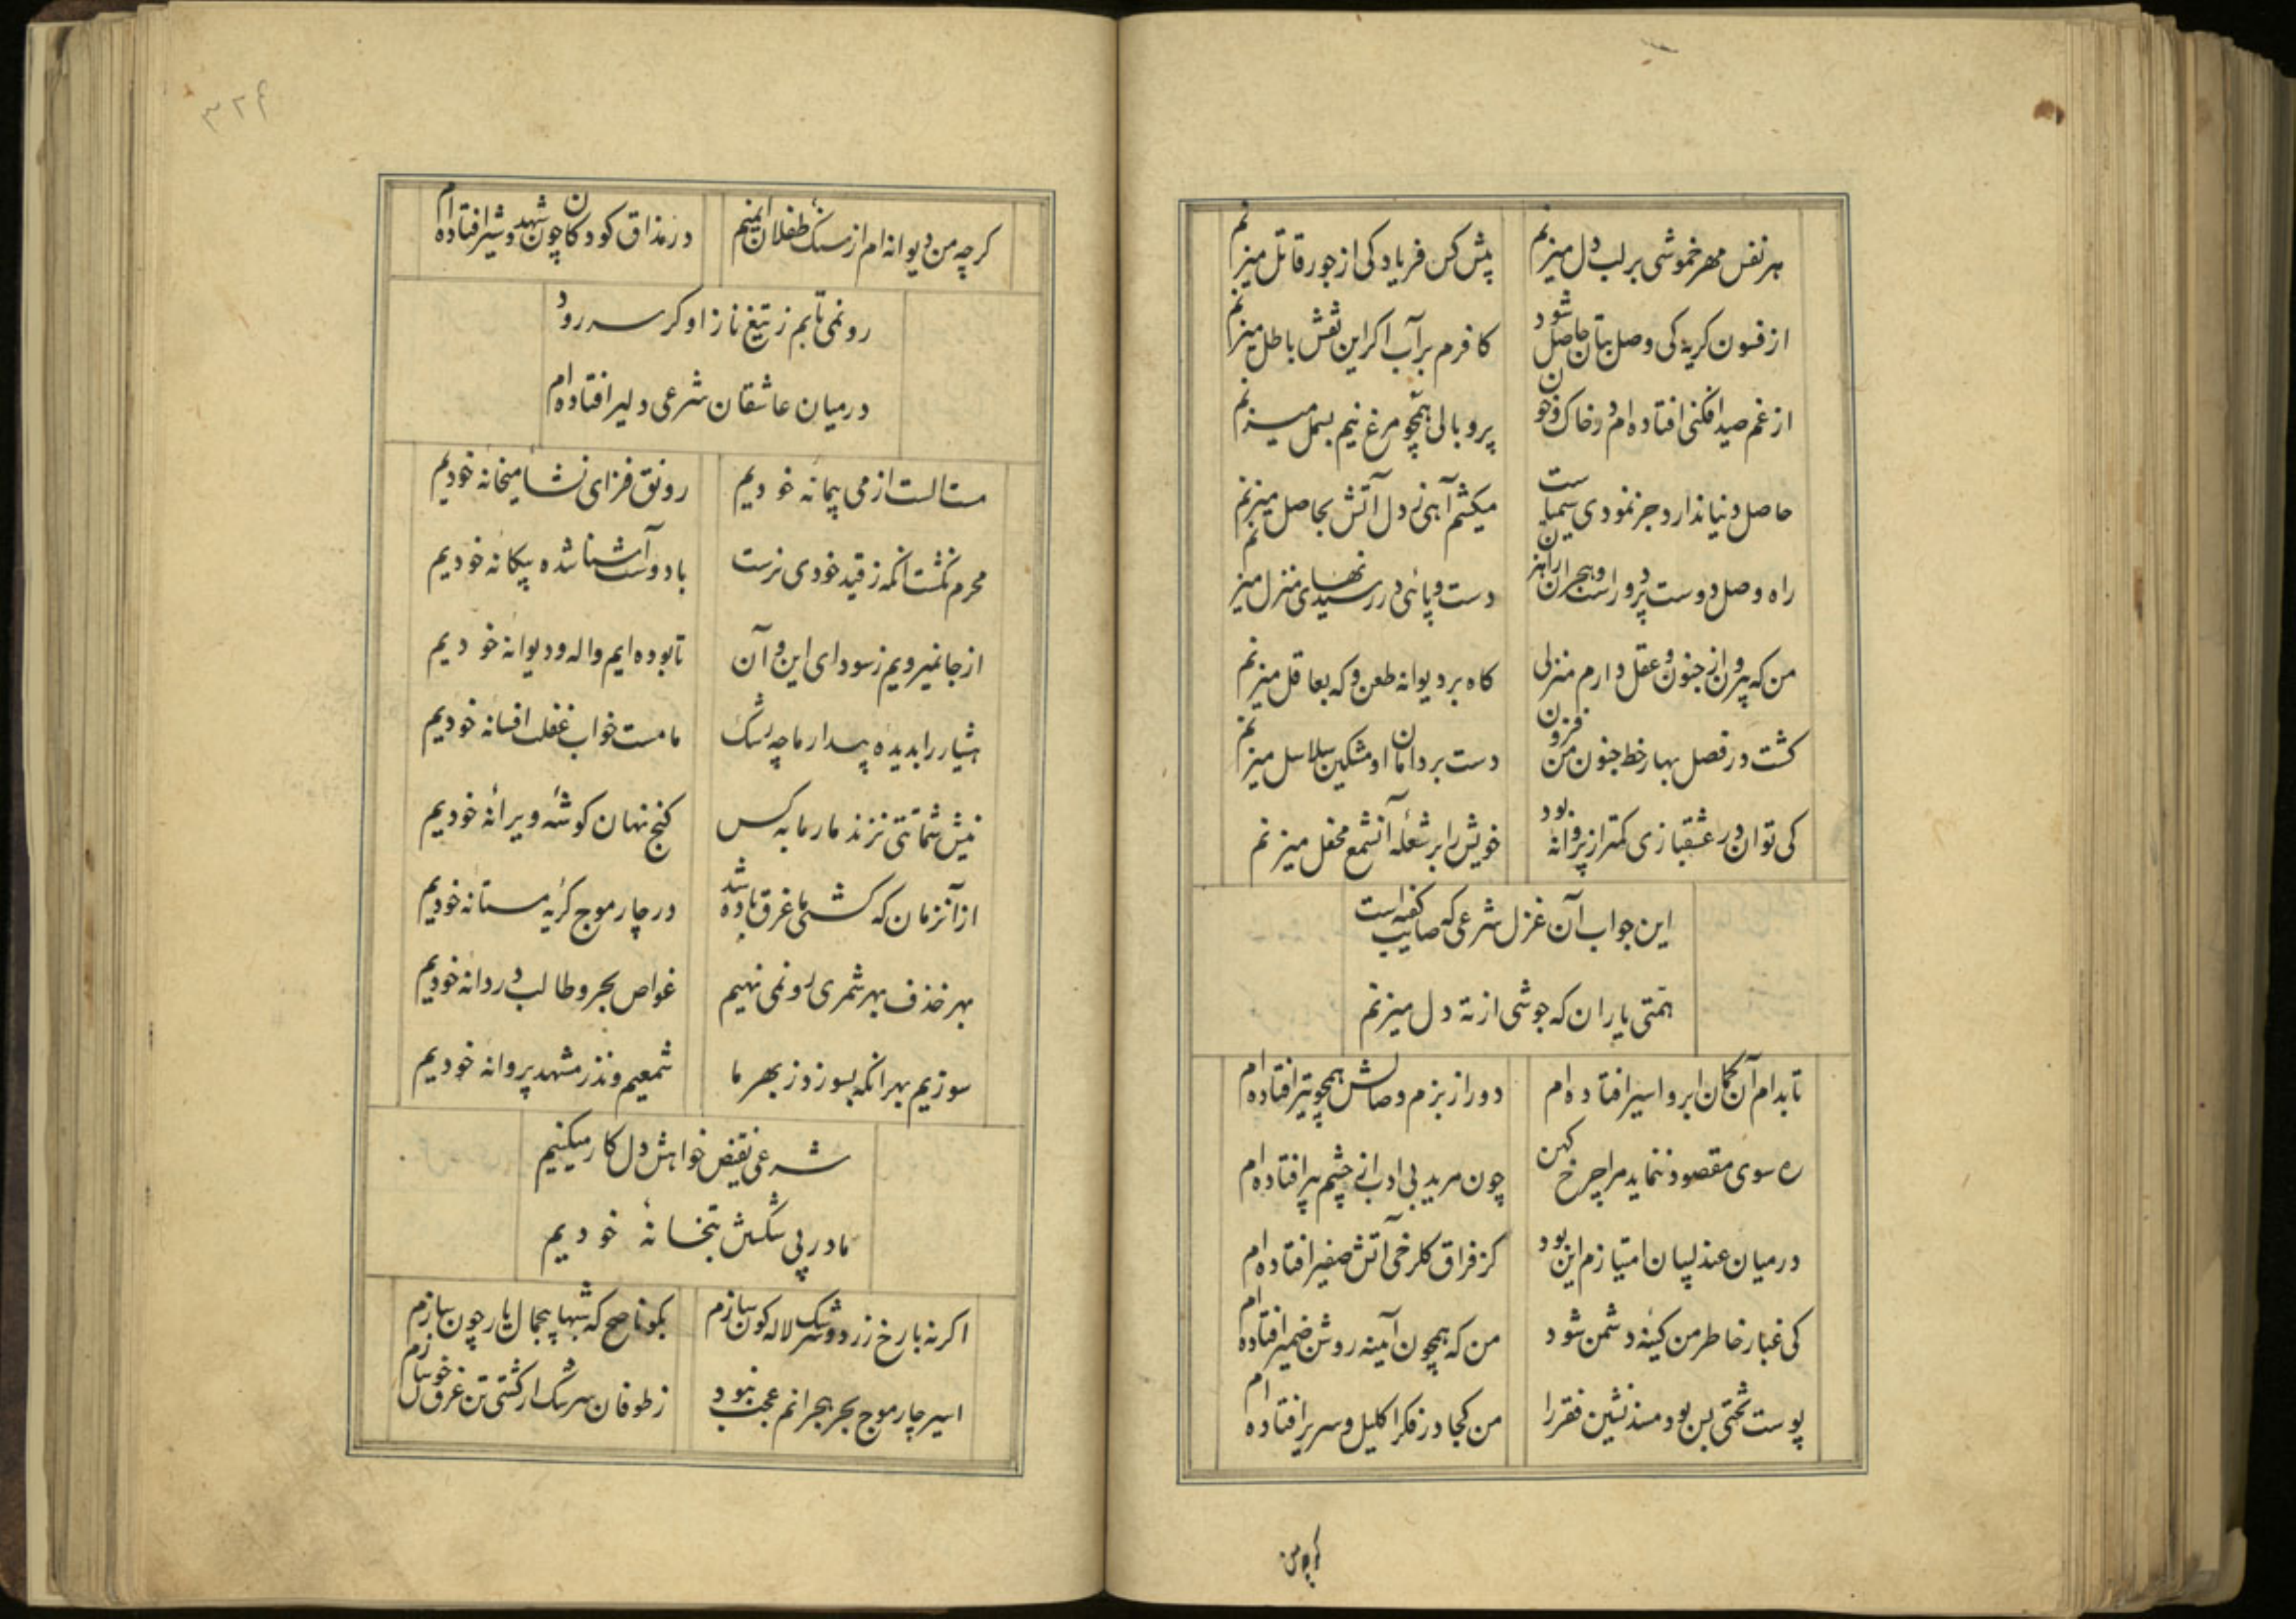 هر نفس مهر خموشی بر لب دل میزنم
پیش کس فریاد کی از جور قاتل میزنم
از فسون گریه کی وصل بتان حاصل شود
کافرم بر آب اگر این نقش باطل میزنم
از غم صید افکنی افتاده ام در خاک و خون
پر و بالی همچو مرغ نیم بسمل میزنم
حاصل دنیا ندارد جز نمودی سیمیاست
میکشم آهی ز دل آتش بحاصل میزنم
راه وصل دوست پر دور است و هجران راهزن
دست و پائی در رسیدنهای منزل میزنم
من که بیرون از جنون و عقل دارم منزلی
گاه بر دیوانه طعن و گه بعاقل میزنم
گشت در فصل بهار خط جنون من فزون
دست بر دامان او مشکین سلاسل میزنم
کی توان در عشقبازی کمتر از پروانه بود
خویش را بر شعلهٔ آنشمع محفل میزنم
این جواب آن غزل شرعی که صائب گفته است
همتی یاران که جوشی از ته دل میزنم
تا بدام آن کمان ابرو اسیر افتاده ام
دور از بزم وصالش همچو تیر افتاده ام
ره سوی مقصود ننماید مرا چرخ کهن
چون مرید بی ادب از چشم پیر افتاده ام
در میان عندلیبان امتیازم این بود
کز فراق گلرخی آتش صفیر افتاده ام
کی غبار خاطر من کینهٔ دشمن شود
من که همچون آینه روشن ضمیر افتاده ام
پوست تختی بس بود مسند نشین فقر را
من کجا در فکر اکلیل و سریر افتاده ام
گرچه من
۳۲۴
گرچه من دیوانه ام از سنگ طفلان ایمنم
در مذاق کودکان چون شهد و شیر افتاده ام
رو نمی تابم ز تیغ ناز او گر سر رود
در میان عاشقان شرعی دلیر افتاده ام
مست الست از می پیمانهٔ خودیم
رونق فزای نشاء میخانهٔ خودیم
محرم نگشت آنکه ز قید خودی نرست
با دوست آشنا شده بیگانهٔ خودیم
از جا نمیرویم ز سودای این و آن
تا بوده ایم واله و دیوانهٔ خودیم
هشیار را بدیدهٔ بیدار ما چه رشک
ما مست خواب غفلت افسانهٔ خودیم
نیش شماتتی نزند مار ما به کس
گنج نهان گوشهٔ ویرانهٔ خودیم
از آنزمان که کشتی ما غرق باده شد
در چار موج گریهٔ مستانهٔ خودیم
بهر خذف بهر شمری رو نمی نهیم
غواص بحر و طالب دردانهٔ خودیم
سوزیم بهر آنکه بسوزد ز بهر ما
شمعیم و نذر مشهد پروانهٔ خودیم
شرعی نقیض خواهش دل کار میکنیم
ما در پی شکستن بتخانهٔ خودیم
اگر نه با رخ زرد و سرشک لاله گون سازم
بگو ناصح که شبها بیجمال یار چون سازم
اسیر چار موج بحر هجرانم عجب نبود
ز طوفان سرشک ار کشتی تن غرق خون سازم